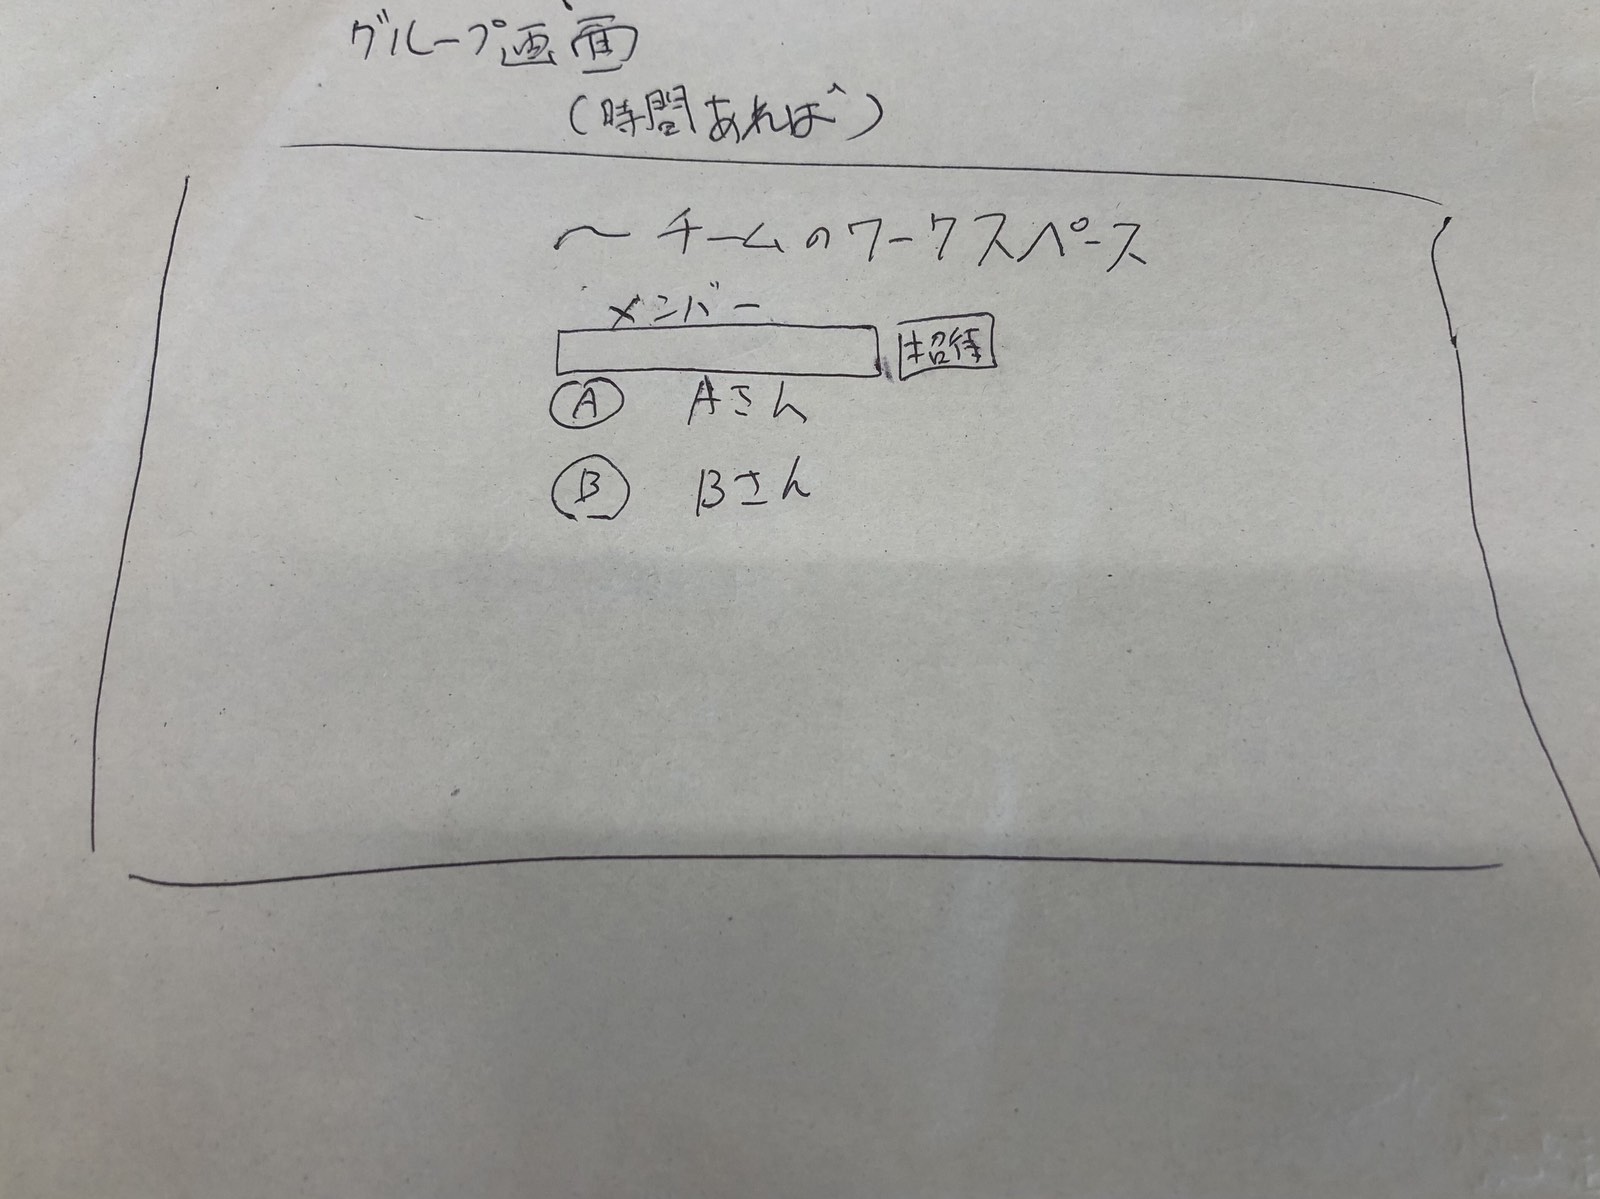 グループ画面
(時間あれば)
〜チームのワークスペース
メンバー
招待
A Aさん
B Bさん